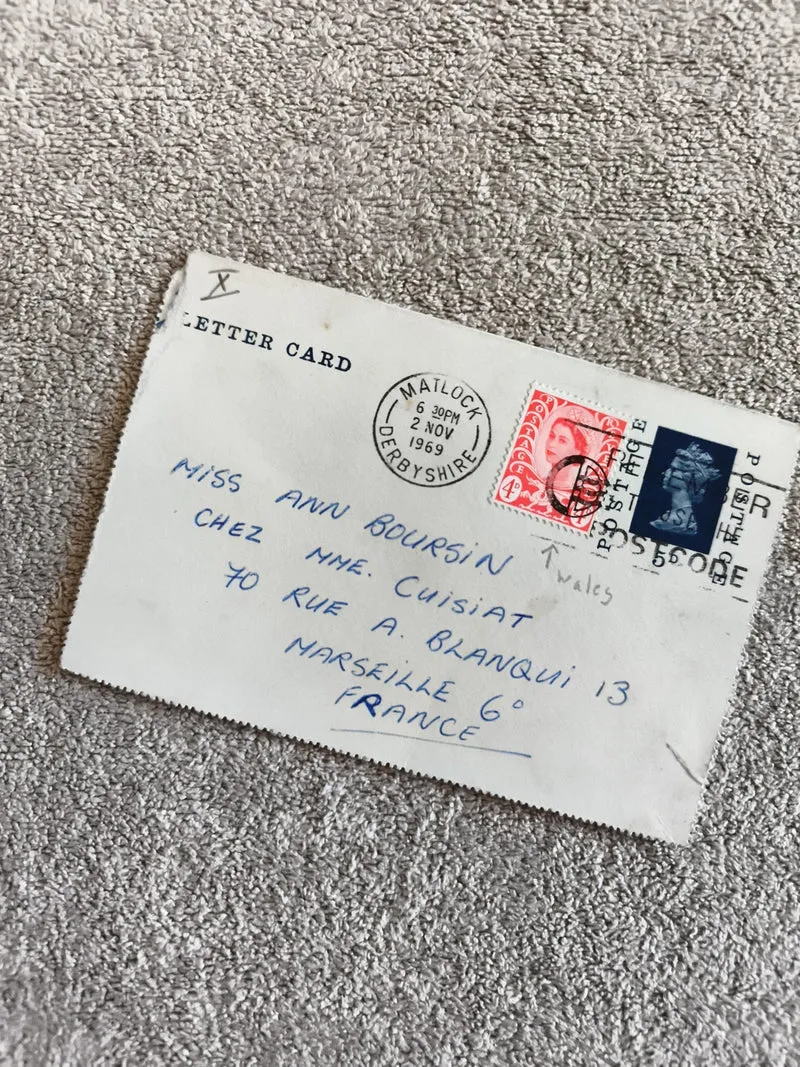 X
LETTER CARD
MATLOCK
6 30PM
2 NOV
1969
DERBYSHIRE
POSTAGE
4D
POSTAGE
POSTAGE
5D
POSTCODE
Wales
MISS ANN BOURSIN
CHEZ MME. CUISIAT
70 RUE A. BLANQUI 13
MARSEILLE 6°
FRANCE